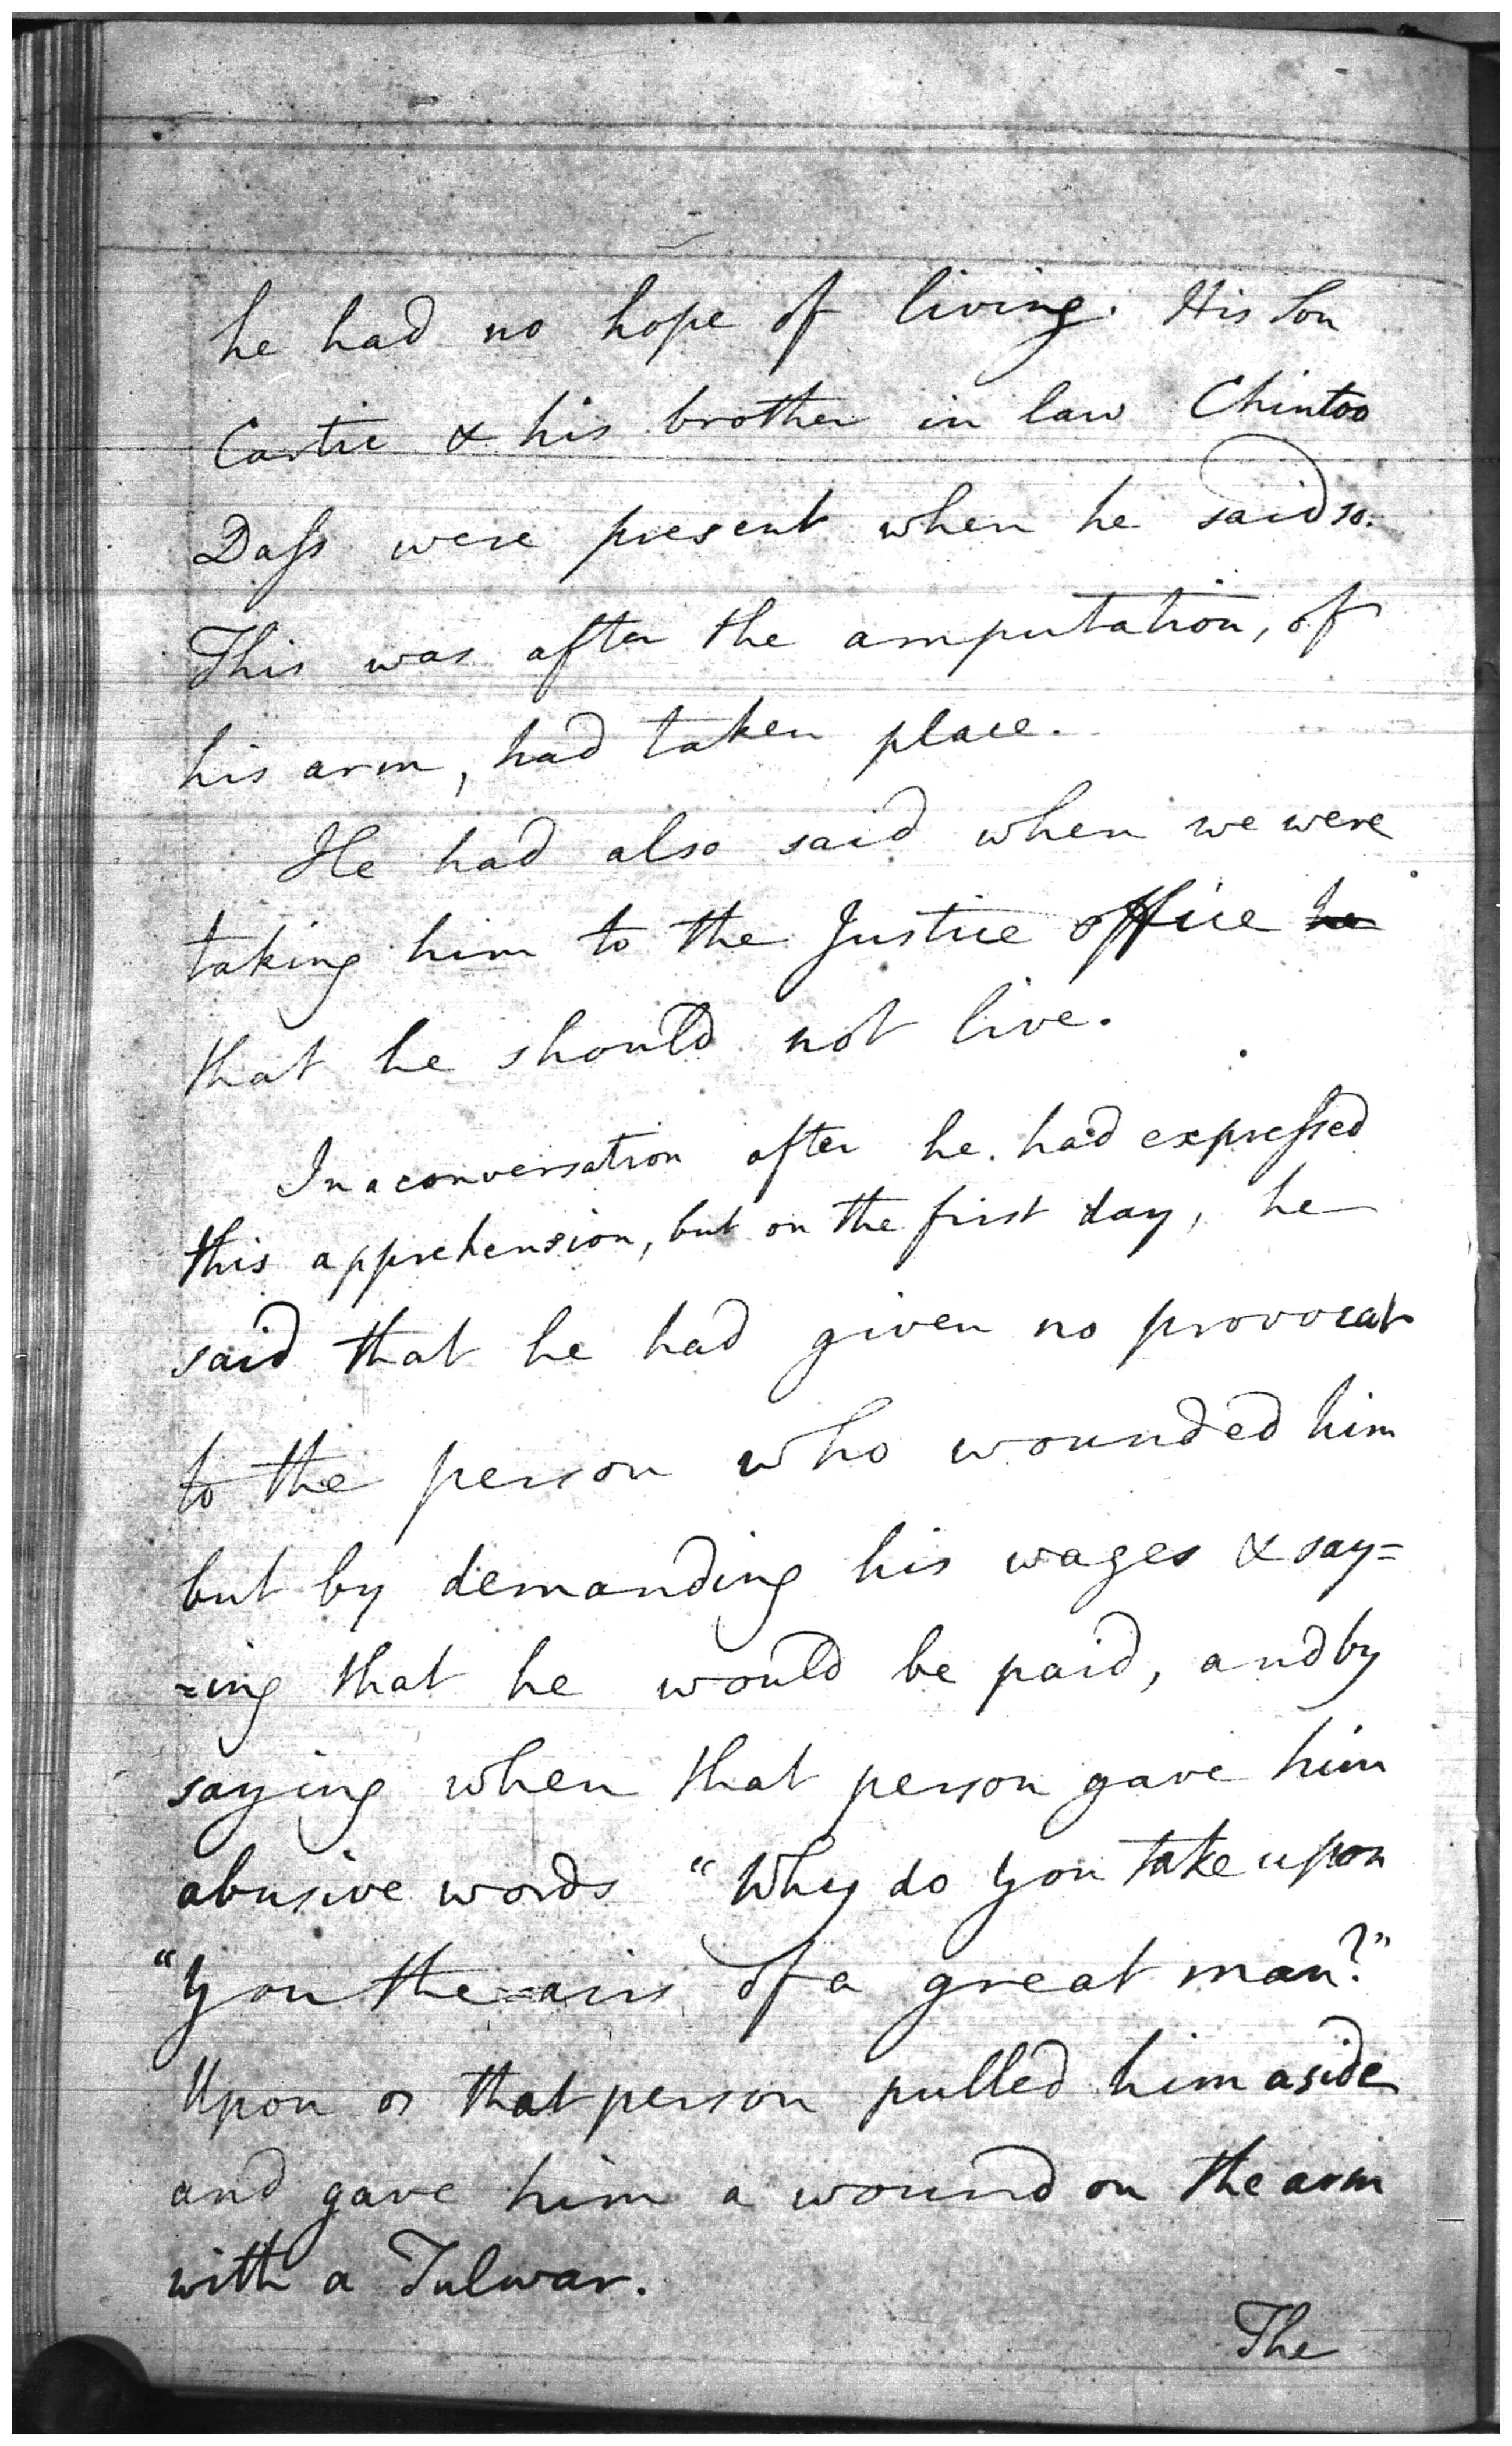 he had no hope of living. His Son
Cartic & his brother in law Chintoo
Dass were present when he said so.
This was after the amputation, of
his arm, had taken place.
He had also said when we were
taking him to the Justice office he
that he should not live.
In a conversation after he had expressed
this apprehension, but on the first day, he
said that he had given no provocat
to the person who wounded him
but by demanding his wages & say=
=ing that he would be paid, and by
saying when that person gave him
abusive words "Why do you take upon
"you the airs of a great man?"
Upon that person pulled him aside
and gave him a wound on the arm
with a Tulwar.
The